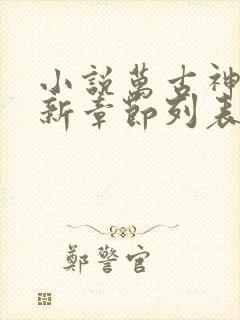 小說萬古神
新章節列表
鄭警官